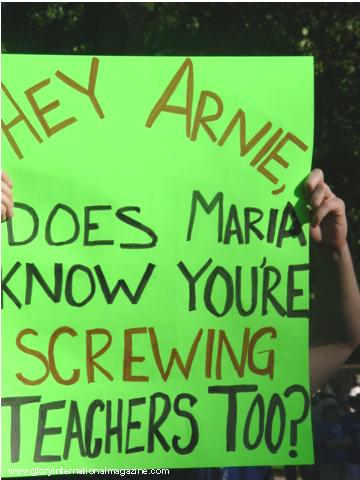 HEY ARNIE,
DOES MARIA
KNOW YOU'RE
SCREWING
TEACHERS TOO?
www.gloryinternationalmagazine.com